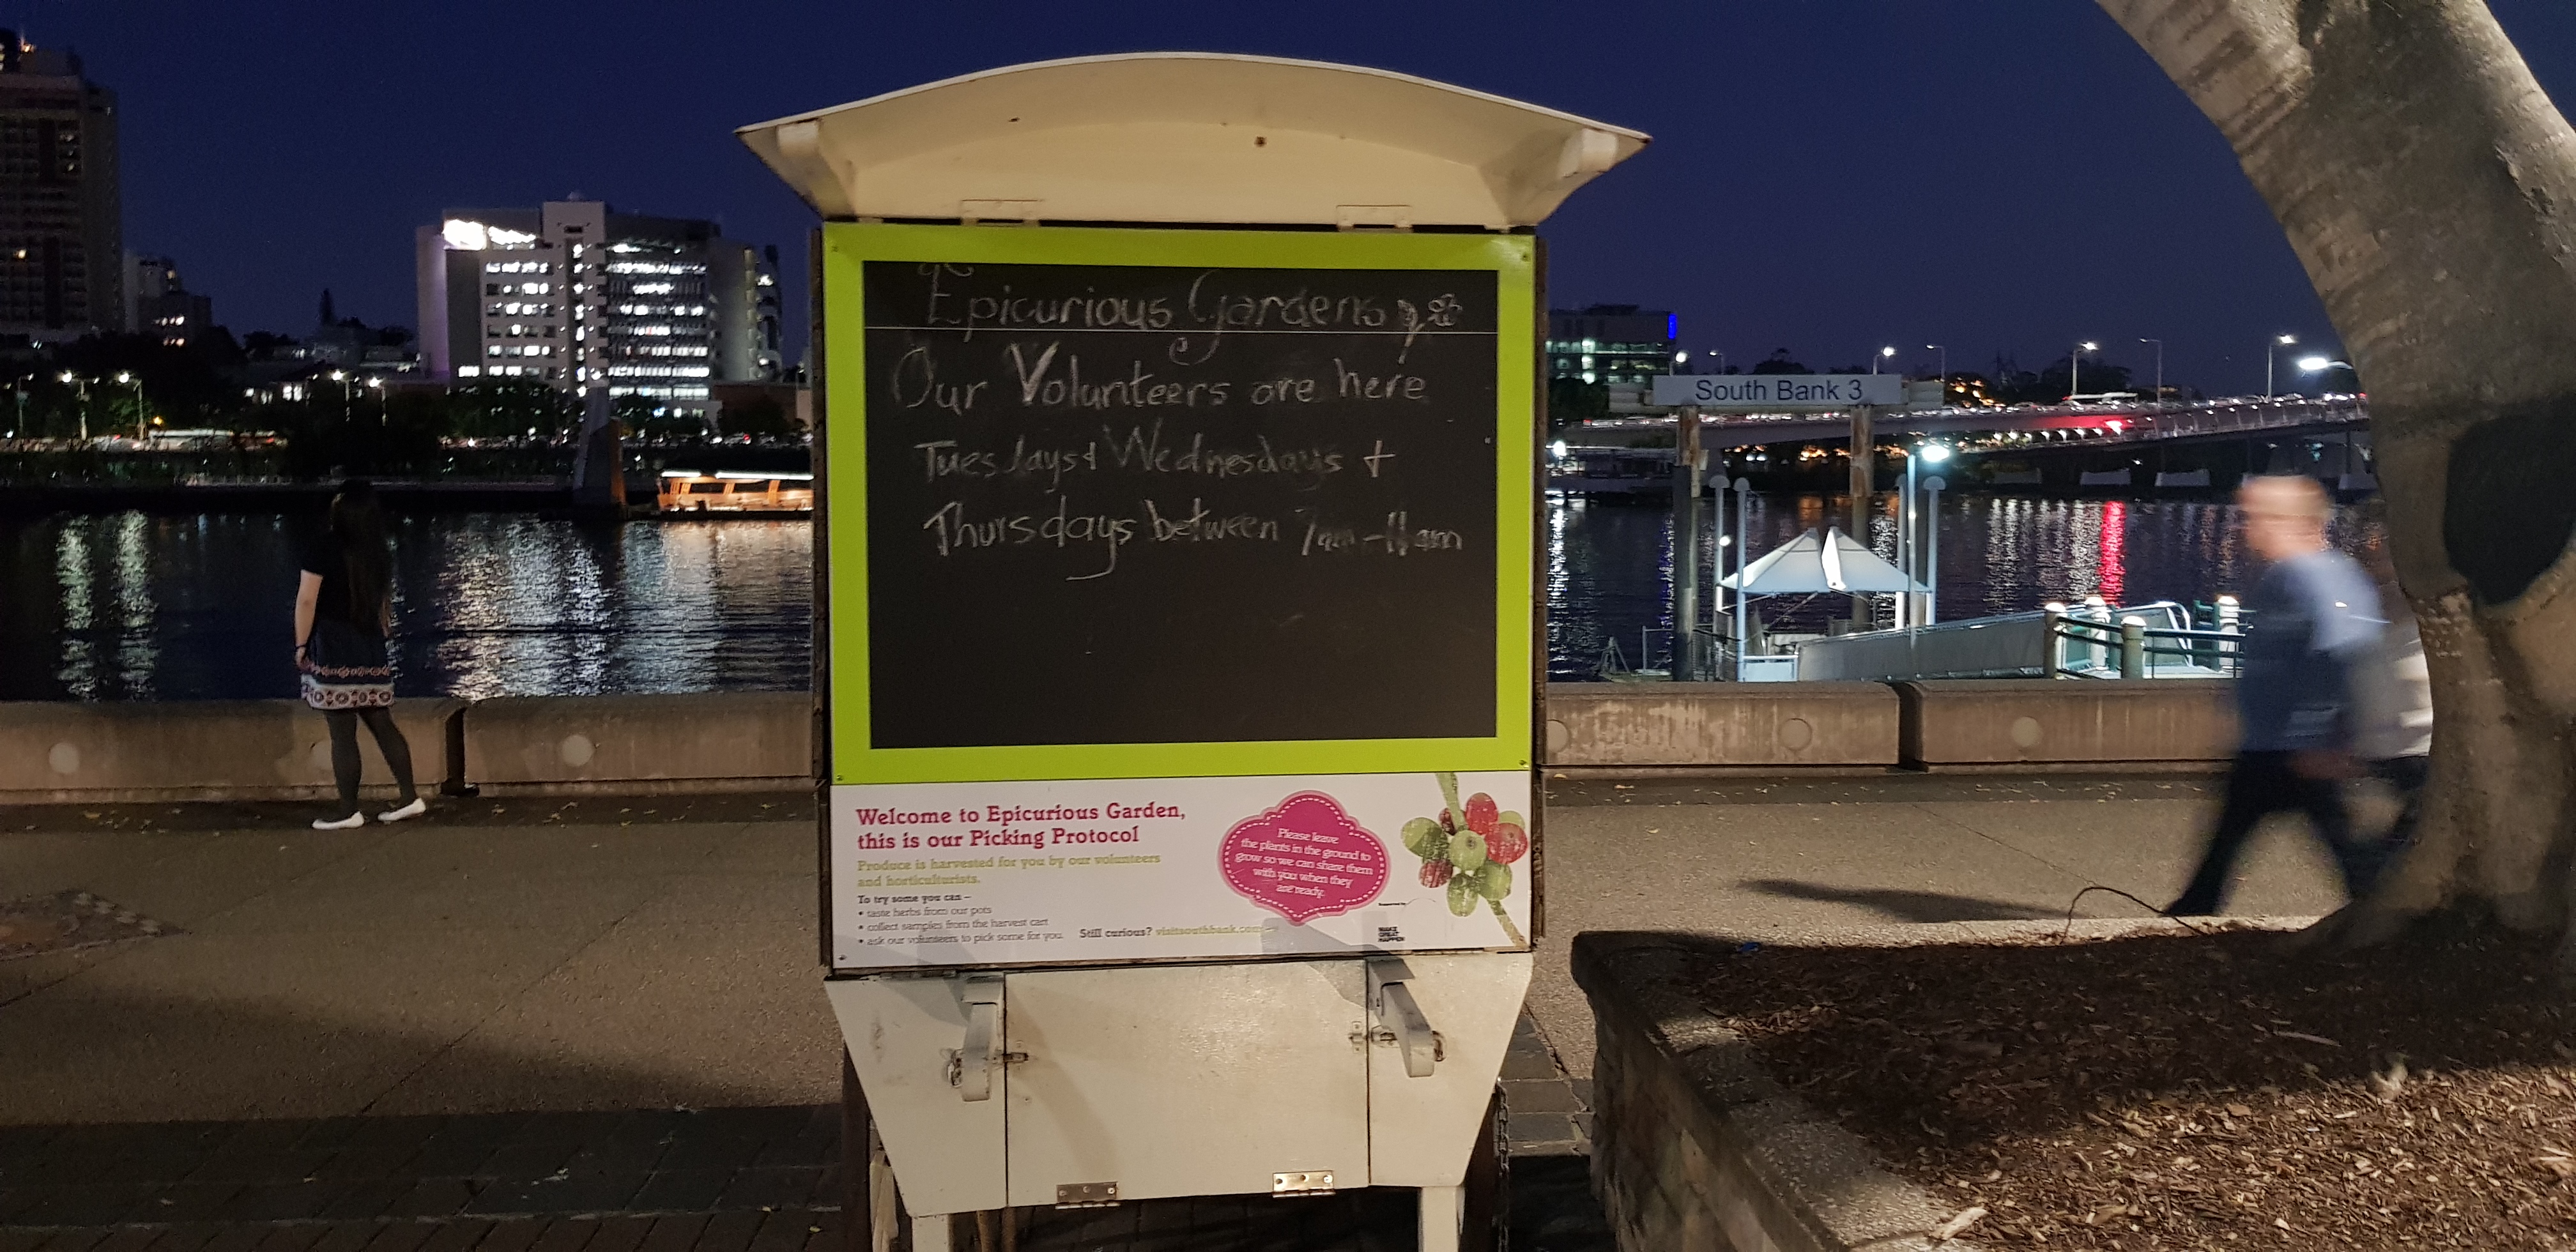 Epicurious Gardens
Our Volunteers are here
Tuesdays + Wednesdays +
Thursdays between 7am-11am
South Bank 3
Welcome to Epicurious Garden,
this is our Picking Protocol
Produce is harvested for you by our volunteers
and horticulturists.
To try some you can –
• taste herbs from our pots
• collect samples from the harvest cart
• ask our volunteers to pick some for you.
Still curious? visitsouthbank.com
Please leave
the plants in the ground to
grow so we can share them
with you when they
are ready.
Supported by
MAKE
GREAT
HAPPEN